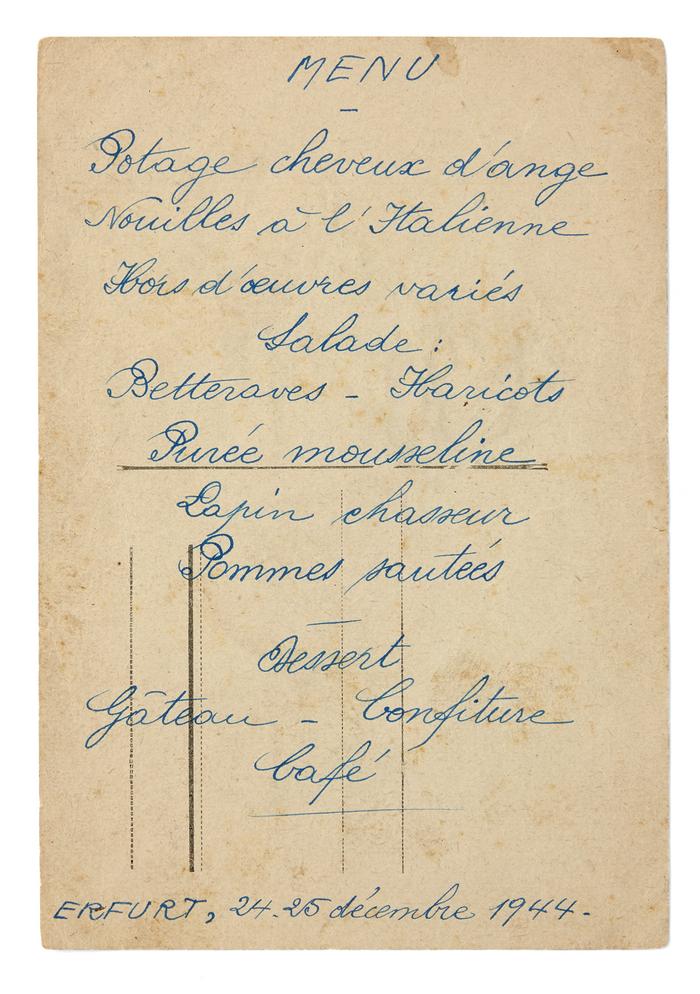 MENU
Potage cheveux d'ange
Nouilles à l'Italienne
Hors d'œuvres variés
Salade :
Betteraves - Haricots
Purée mousseline
Lapin chasseur
Pommes sautées
Dessert
Gâteau - Confiture
Café
ERFURT, 24.25 décembre 1944.